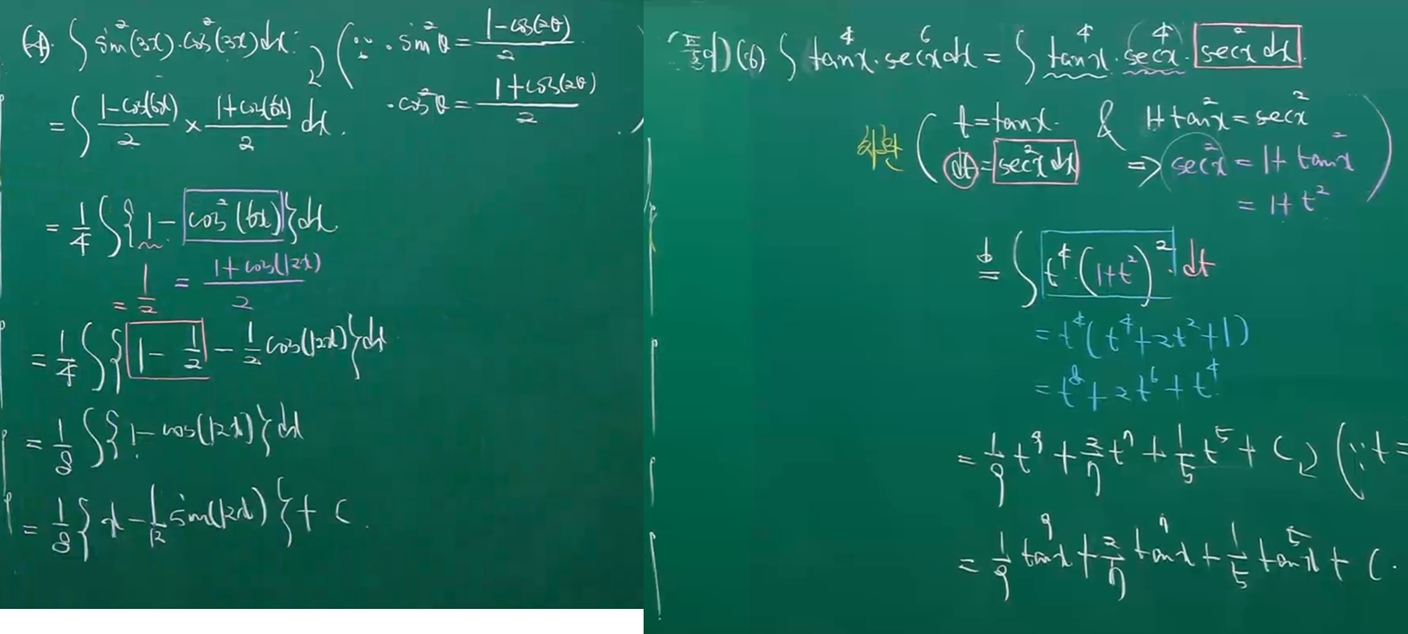 ∫ sin²(3x)·cos²(3x)dx. (∵ · sin²θ = (1-cos(2θ))/2
· cos²θ = (1+cos(2θ))/2
= ∫ (1-cos(6x))/2 × (1+cos(6x))/2 dx.
= 1/4 ∫{1 - cos²(6x)}dx.
= 1/2 = (1+cos(12x))/2
= 1/4 ∫{1 - 1/2 - 1/2 cos(12x)}dx
= 1/8 ∫{1 - cos(12x)}dx
= 1/8 {x - 1/12 sin(12x)} + C.
(6) ∫ tan⁴x·sec⁶x dx = ∫ tan⁴x·sec⁴x·sec²x dx.
치환 ( t = tanx. & 1+tan²x = sec²x
dt = sec²x dx ⇒ sec²x = 1+tan²x
= 1+t² )
= ∫ t⁴·(1+t²)²·dt
= t⁴(t⁴+2t²+1)
= t⁸+2t⁶+t⁴.
= 1/9 t⁹ + 2/7 t⁷ + 1/5 t⁵ + C (∵ t =
= 1/9 tan⁹x + 2/7 tan⁷x + 1/5 tan⁵x + C.